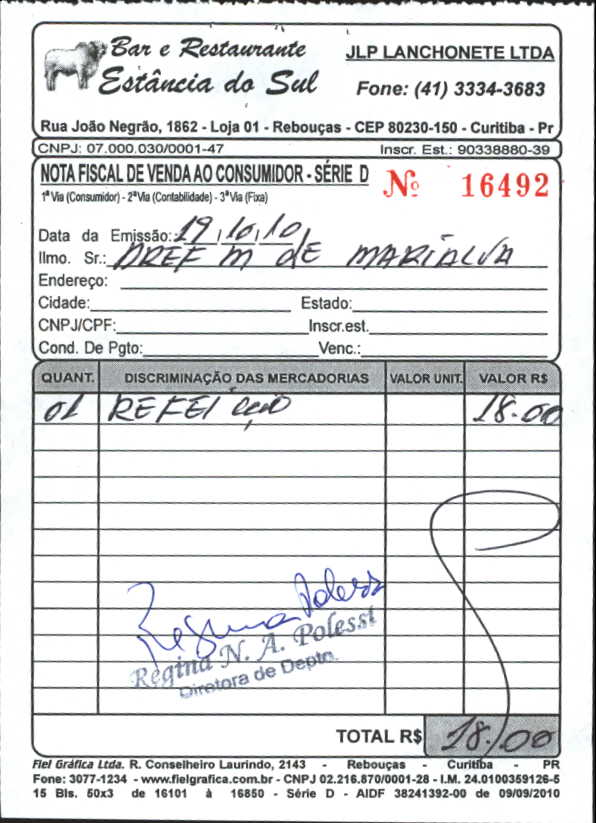 Bar e Restaurante
Estância do Sul
JLP LANCHONETE LTDA
Fone: (41) 3334-3683
Rua João Negrão, 1862 - Loja 01 - Rebouças - CEP 80230-150 - Curitiba - Pr
CNPJ: 07.000.030/0001-47 Inscr. Est.: 90338880-39
NOTA FISCAL DE VENDA AO CONSUMIDOR - SÉRIE D Nº 16492
1ª Via (Consumidor) - 2ª Via (Contabilidade) - 3ª Via (Fixa)
Data da Emissão: 19, 10, 10
Ilmo. Sr.: PREF M dE MARIALVA
Endereço:
Cidade: Estado:
CNPJ/CPF: Inscr.est.
Cond. De Pgto: Venc.:
QUANT. DISCRIMINAÇÃO DAS MERCADORIAS VALOR UNIT. VALOR R$
01 REFEIção 18.00
Regina Polessi
Regina N. A. Polessi
Diretora de Depto.
TOTAL R$ 18.00
Fiel Gráfica Ltda. R. Conselheiro Laurindo, 2143 - Rebouças - Curitiba - PR
Fone: 3077-1234 - www.fielgrafica.com.br - CNPJ 02.216.870/0001-28 - I.M. 24.0100359126-5
15 Bls. 50x3 de 16101 à 16850 - Série D - AIDF 38241392-00 de 09/09/2010